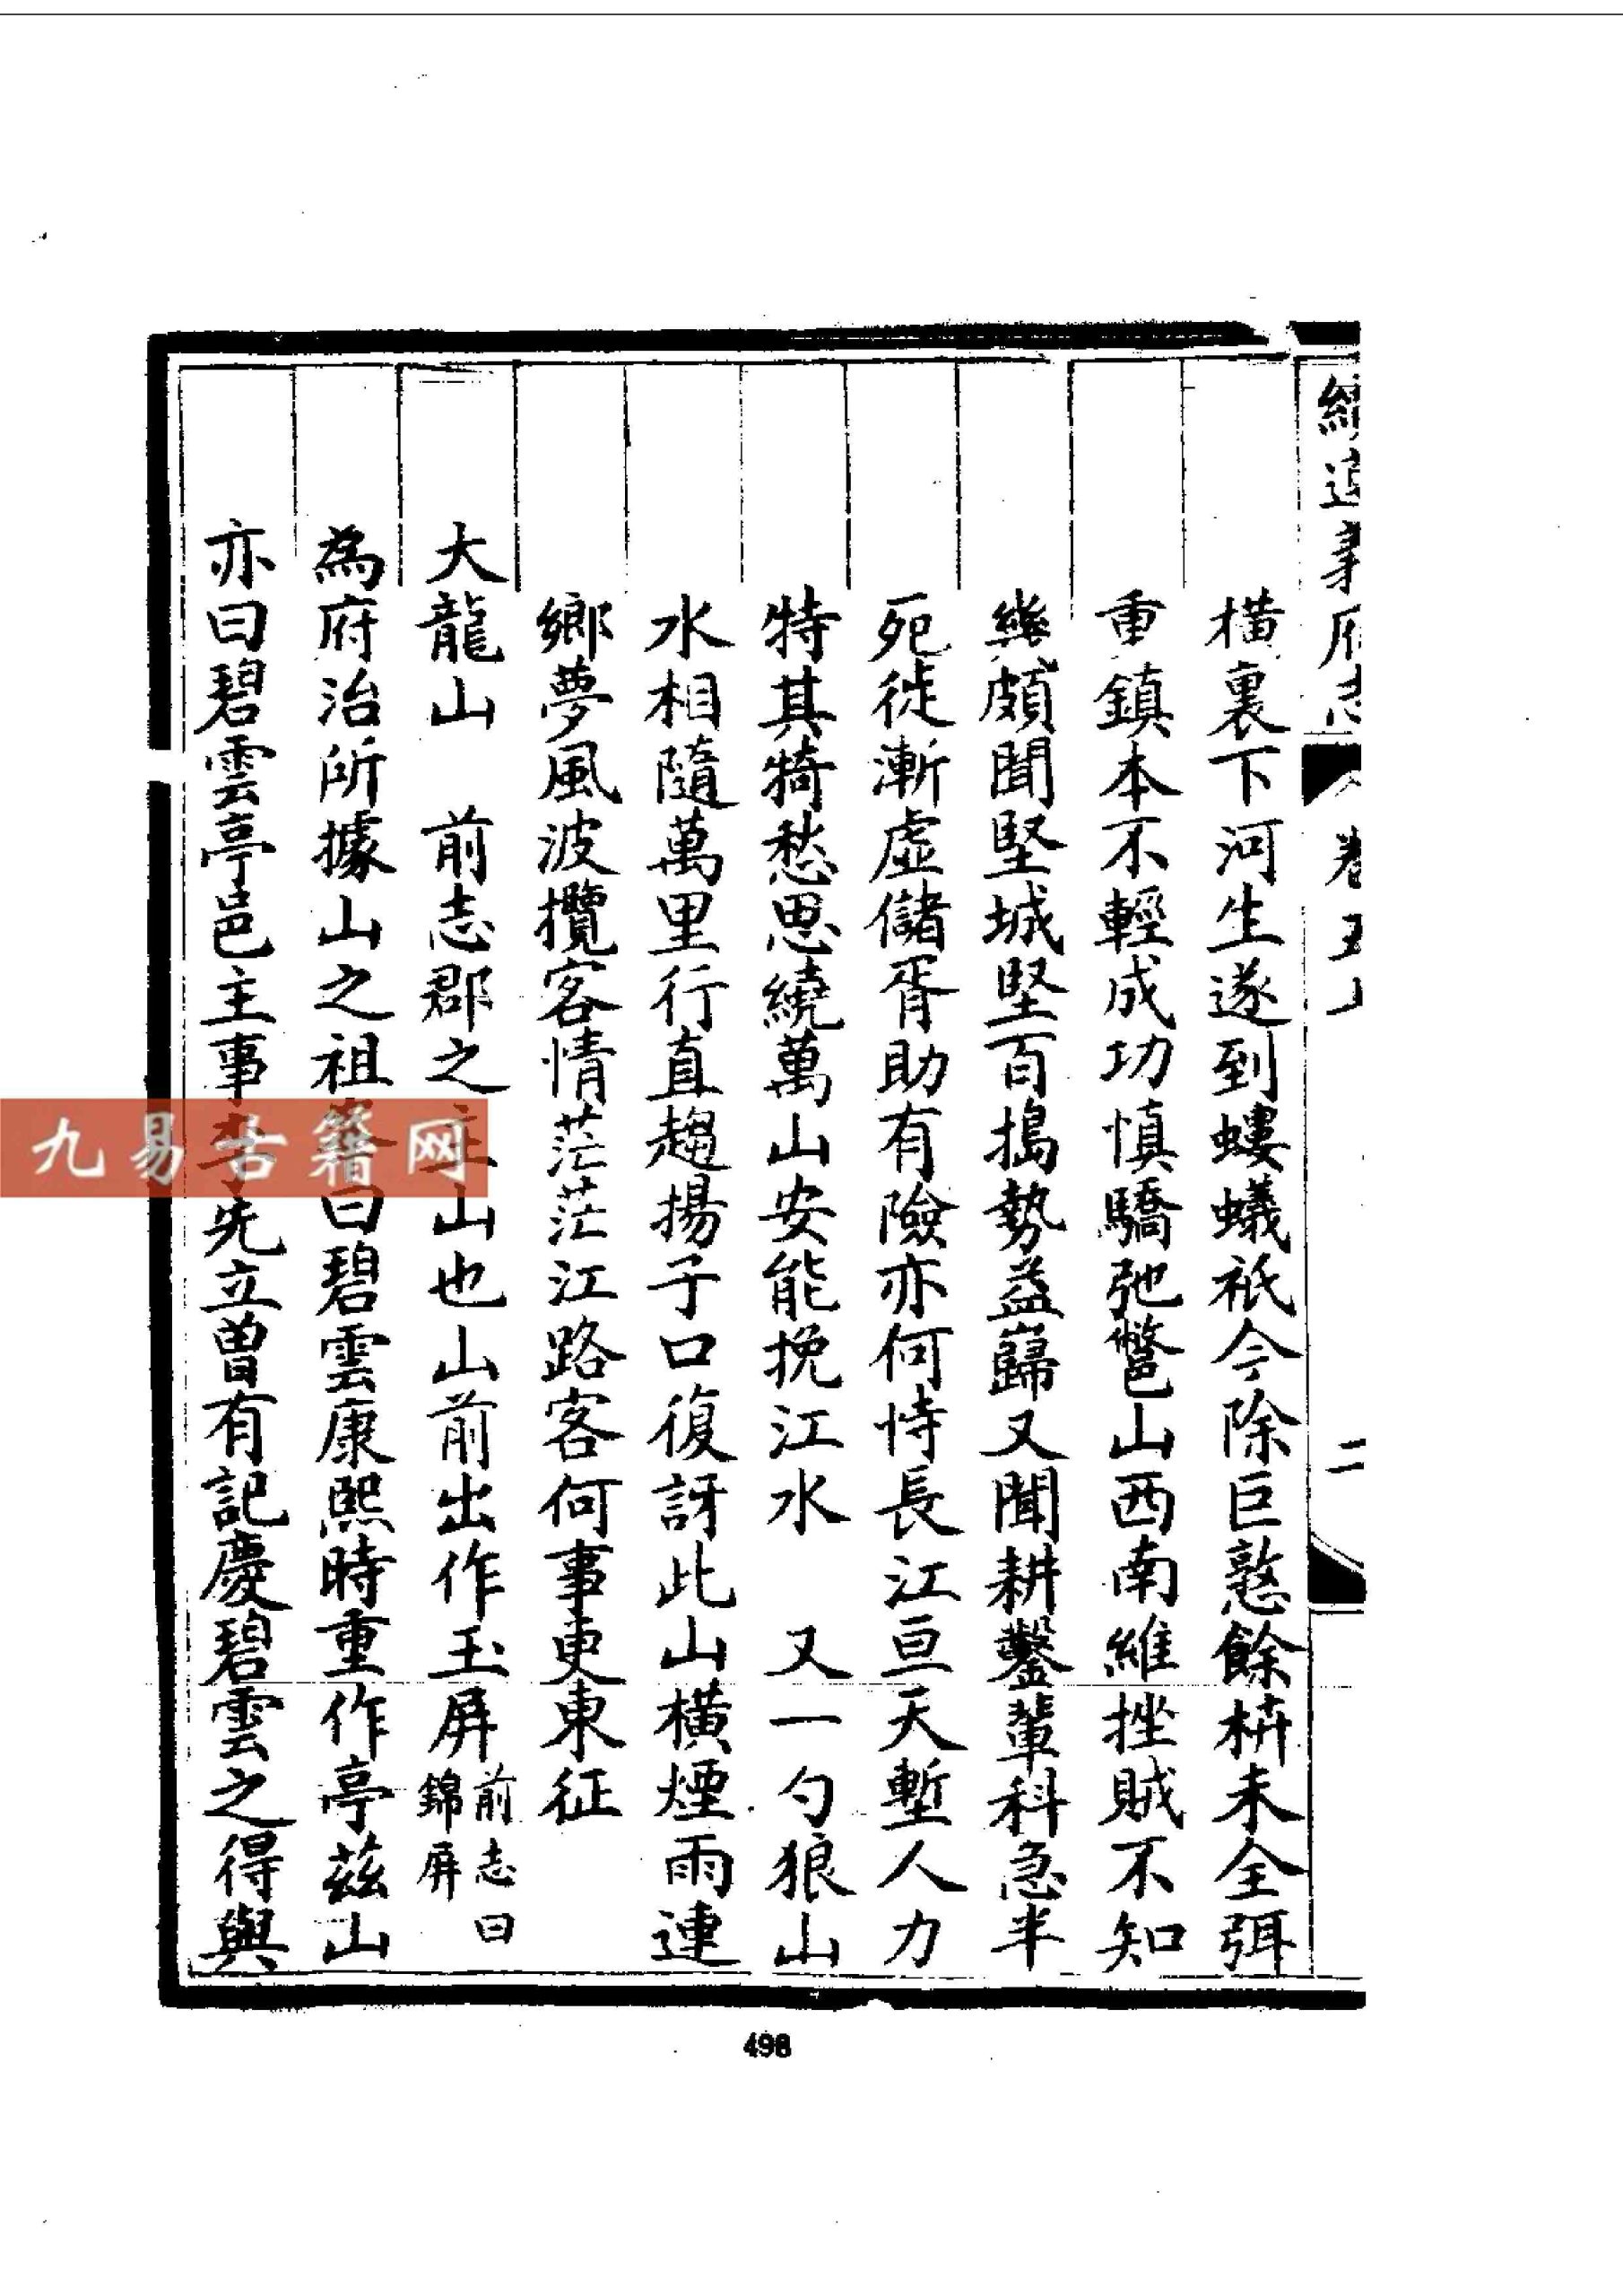 續遵義府志 卷五上 二
橫裏下河生遂到螻蟻祇今除巨憝餘枿未全弭
重鎮本不輕成功慎驕弛鼈邑山西南維挫賊不知
幾頗聞堅城堅百搗勢益巋又聞耕鑿輩科急半
死徙漸虛儲胥助有險亦何恃長江亘天塹人力
特其犄愁思繞萬山安能挽江水 又一勺狼山
水相隨萬里行直趨揚子口復訝此山橫煙雨連
鄉夢風波攬客情茫茫江路客何事更東征
大龍山 前志郡之主山也山前出作玉屏前志曰錦屏
為府治所據山之祖
曰碧雲康熙時重作亭茲山
亦曰碧雲亭邑主事李先立曾有記慶碧雲之得與
九易古籍网
498